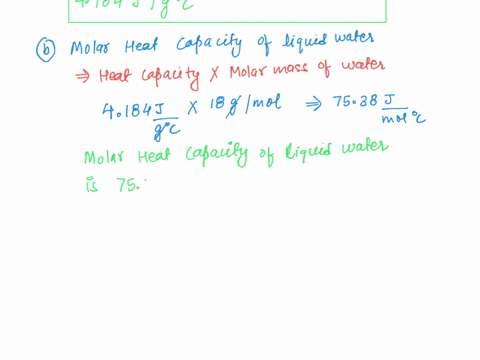 4.184 J/g°C
(b) Molar Heat Capacity of liquid water
⇒ Heat capacity X Molar mass of water
4.184 J/g°C X 18 g/mol ⇒ 75.38 J/mol°C
Molar Heat Capacity of liquid water
is 75.